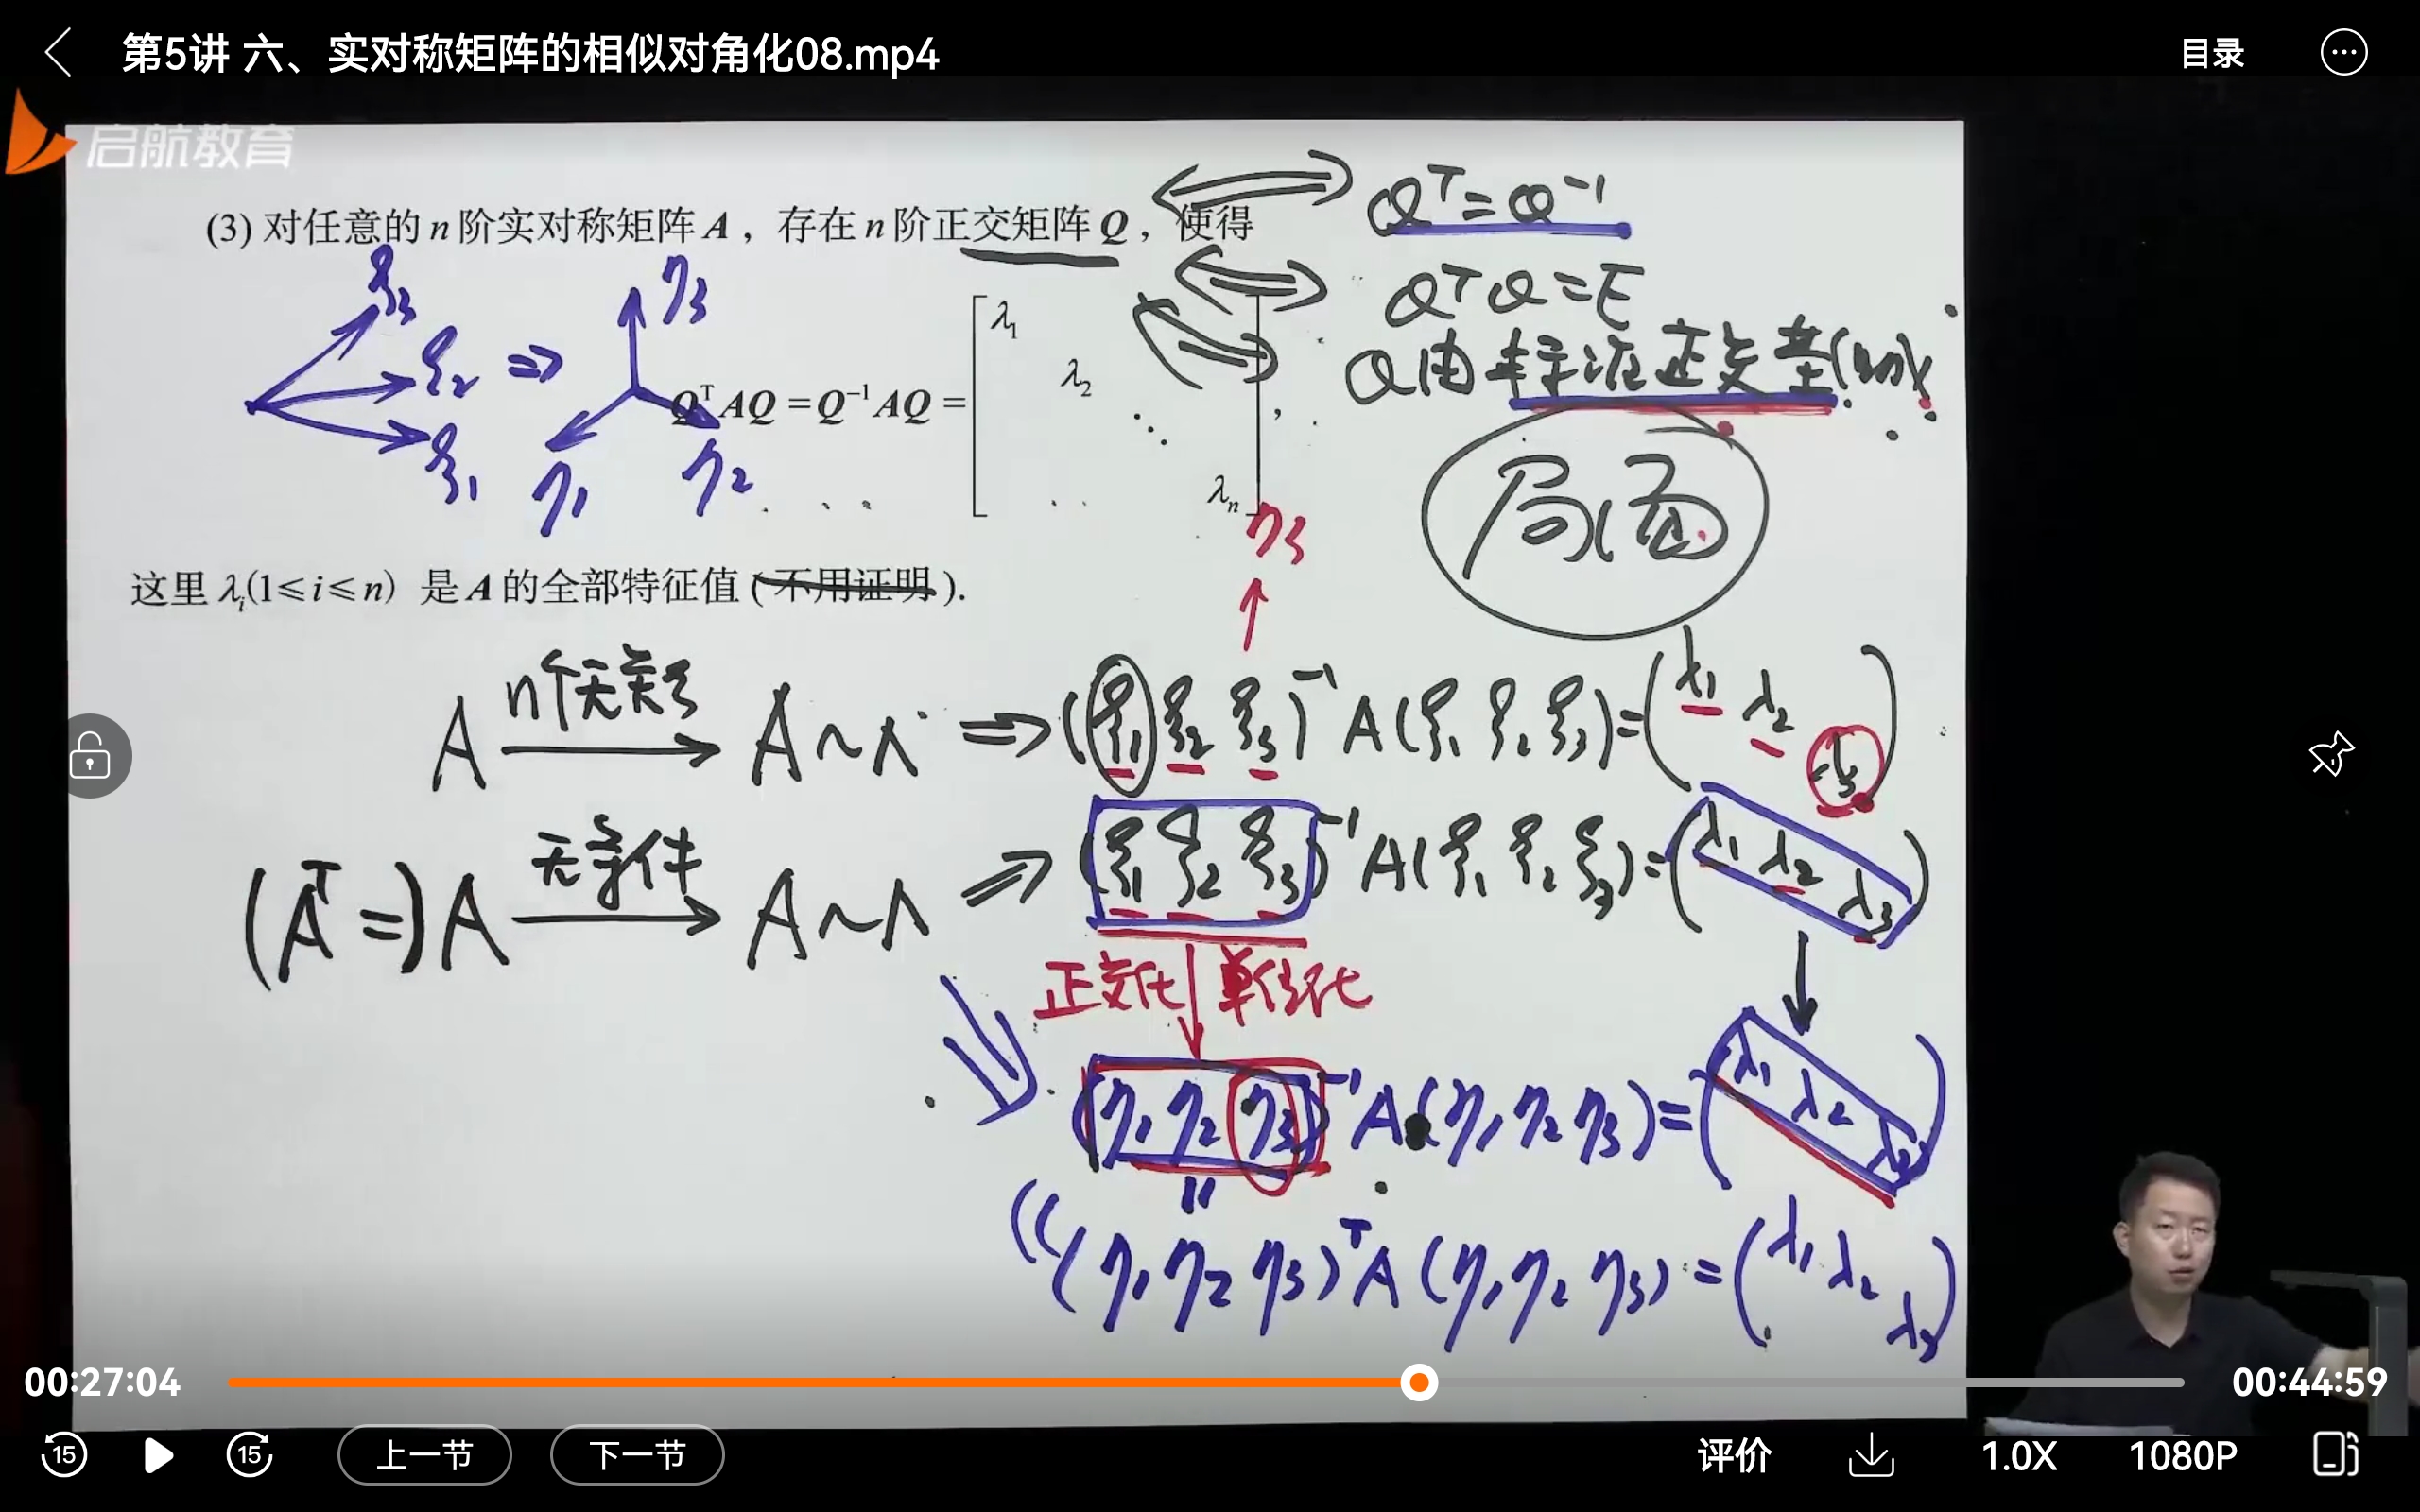 第5讲 六、实对称矩阵的相似对角化08.mp4
目录
启航教育
(3) 对任意的 n 阶实对称矩阵 A，存在 n 阶正交矩阵 Q，使得
Qᵀ=Q⁻¹
QᵀQ=E
Q由标准正交基
ξ₃
ξ₂ ⇒
ξ₁
η₃
η₁
η₂
QᵀAQ = Q⁻¹AQ = [λ₁ λ₂ ⋱ λₙ],
局面
这里 λᵢ(1≤i≤n) 是 A 的全部特征值 (不用证明).
η₃
↑
A n个无关ξ → A∼Λ ⇒ (ξ₁ ξ₂ ξ₃)⁻¹A(ξ₁ ξ₂ ξ₃)=(λ₁ λ₂ λ₃)
(Aᵀ=)A 无条件 → A∼Λ ⇒ (ξ₁ ξ₂ ξ₃)⁻¹A(ξ₁ ξ₂ ξ₃)=(λ₁ λ₂ λ₃)
正交化 单位化
(η₁ η₂ η₃)⁻¹A(η₁ η₂ η₃)=(λ₁ λ₂ λ₃)
(η₁ η₂ η₃)ᵀA(η₁ η₂ η₃)=(λ₁ λ₂ λ₃)
00:27:04
00:44:59
15
15
上一节
下一节
评价
1.0X
1080P